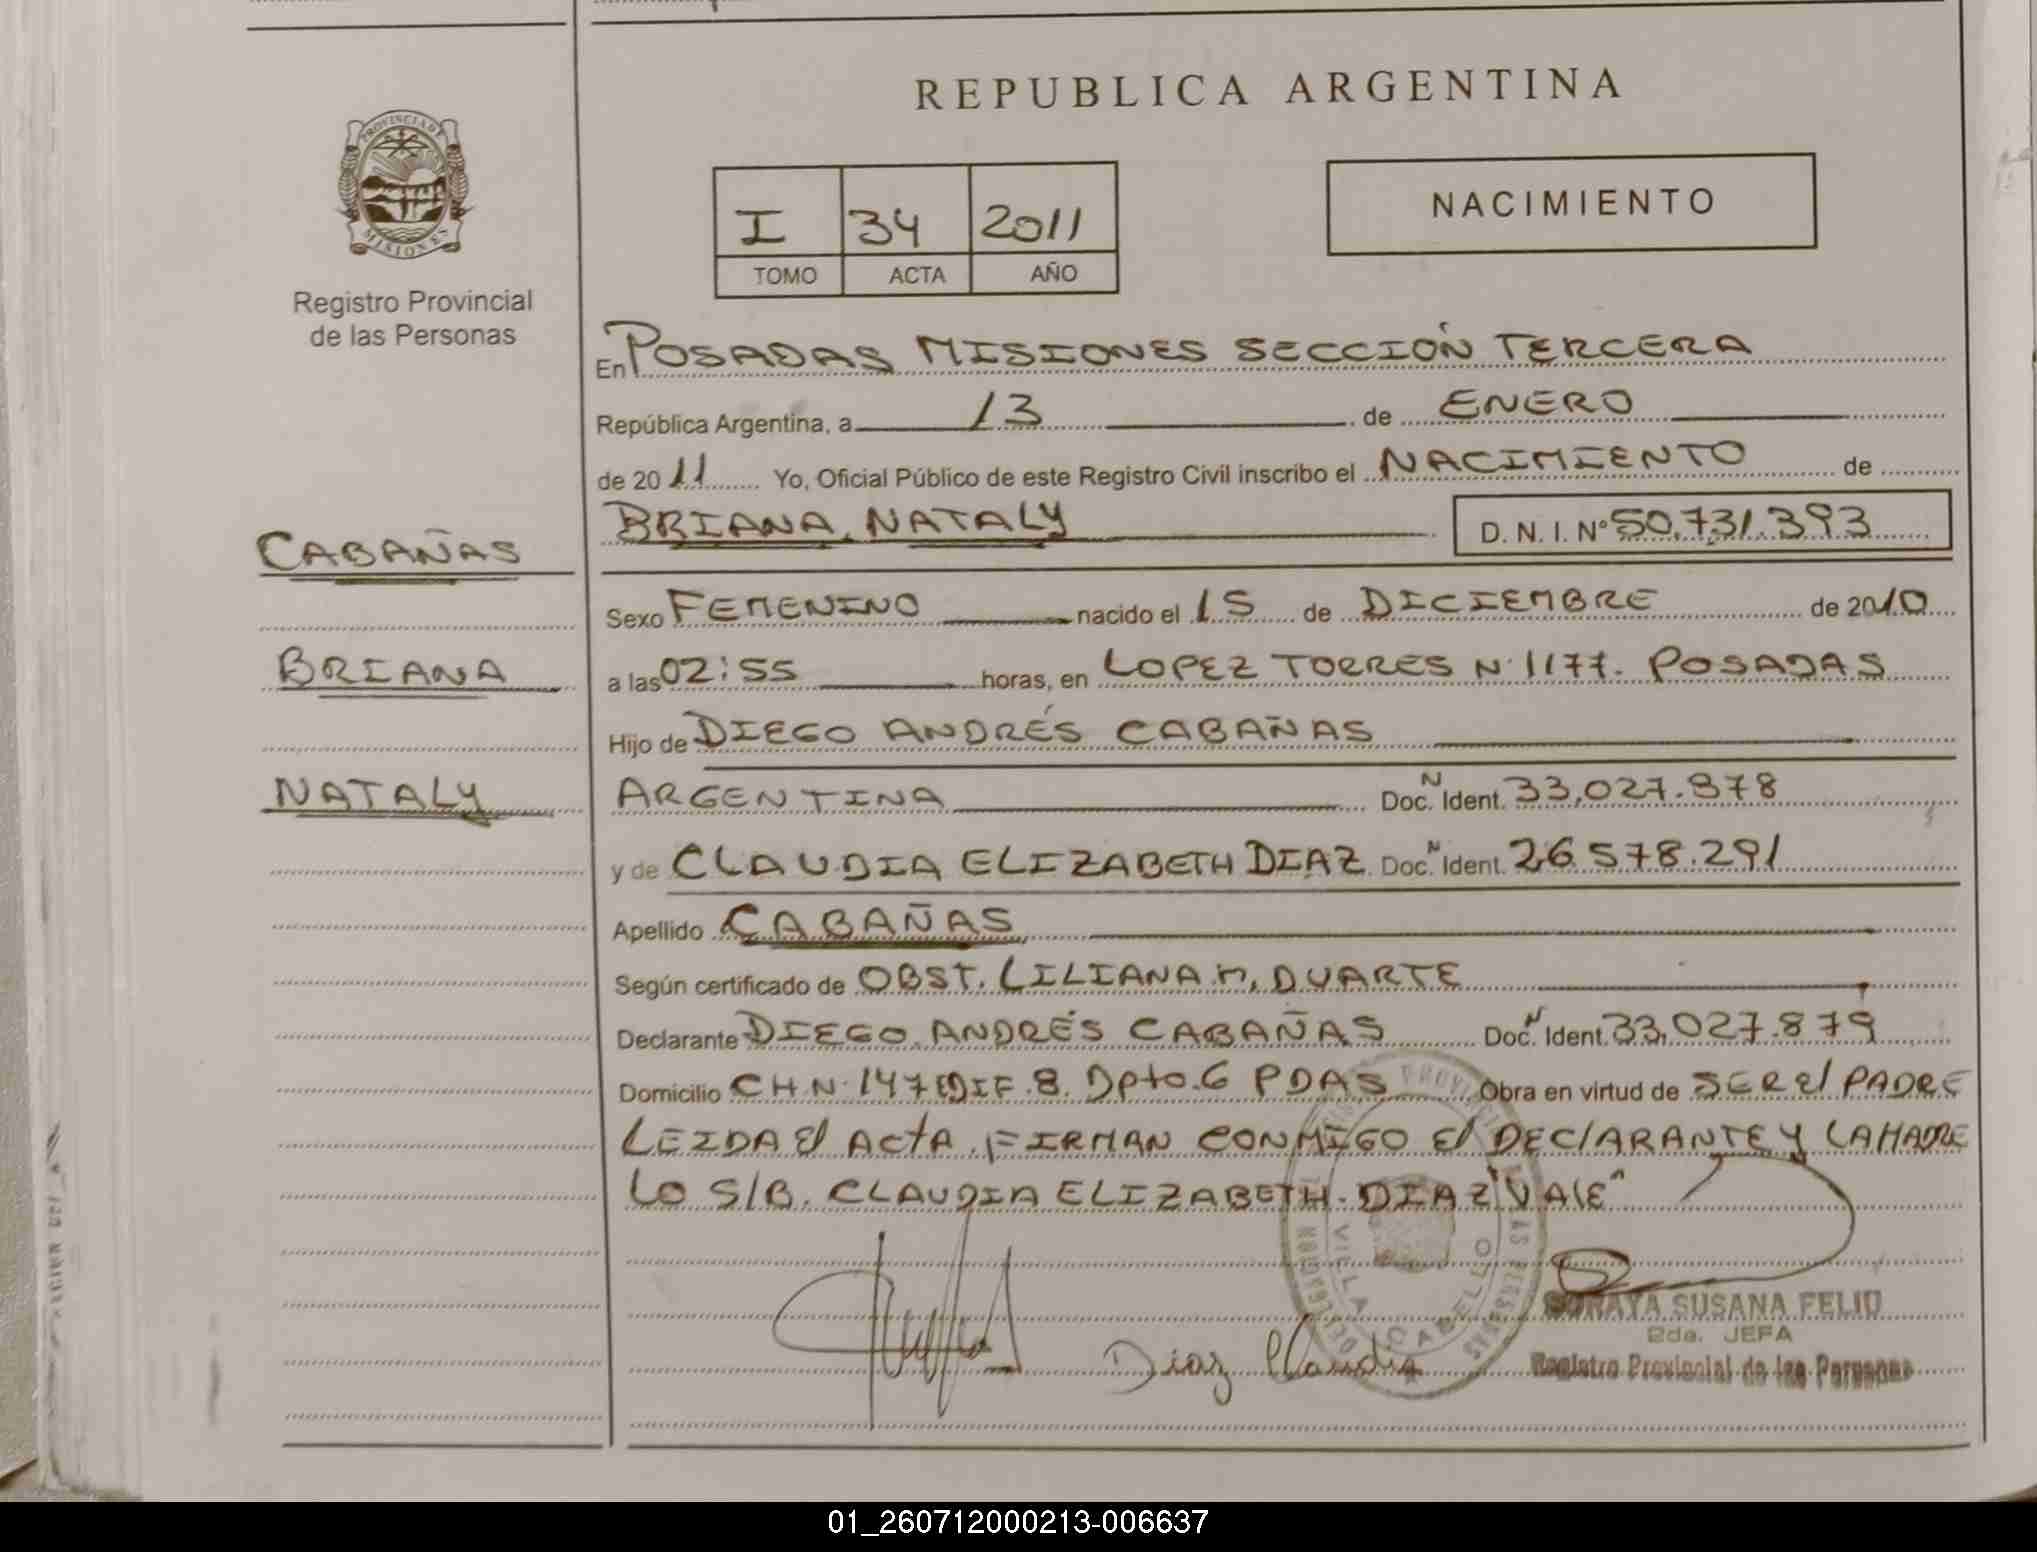 REPUBLICA ARGENTINA
PROVINCIA DE
MISIONES
Registro Provincial
de las Personas
I 34 2011
TOMO ACTA AÑO
NACIMIENTO
En POSADAS MISIONES SECCIÓN TERCERA
República Argentina, a 13 de ENERO
de 2011 Yo, Oficial Público de este Registro Civil inscribo el NACIMIENTO de
BRIANA NATALY D. N. I. Nº 50.731.393
CABAÑAS
BRIANA
NATALY
Sexo FEMENINO nacido el 15 de DICIEMBRE de 2010
a las 02:55 horas, en LOPEZ TORRES N· 1177. POSADAS
Hijo de DIEGO ANDRÉS CABAÑAS
ARGENTINA Doc. N Ident. 33.027.878
y de CLAUDIA ELIZABETH DIAZ Doc. N Ident. 26.578.291
Apellido CABAÑAS
Según certificado de OBST. LILIANA M. DUARTE
Declarante DIEGO ANDRÉS CABAÑAS Doc. N Ident. 33.027.879
Domicilio CH.N· 147 EDIF. 8. Dpto. 6 PDAS Obra en virtud de SER El PADRE
LEIDA El ACtA, FIRMAN CONMIGO El DEClARANTE Y LA MADRE
LO S/B. CLAUDIA ELIZABETH. DIAZ "VAlE"
Diaz Claudia
SORAYA SUSANA FELIU
2da. JEFA
Registro Provincial de las Personas
01_260712000213-006637